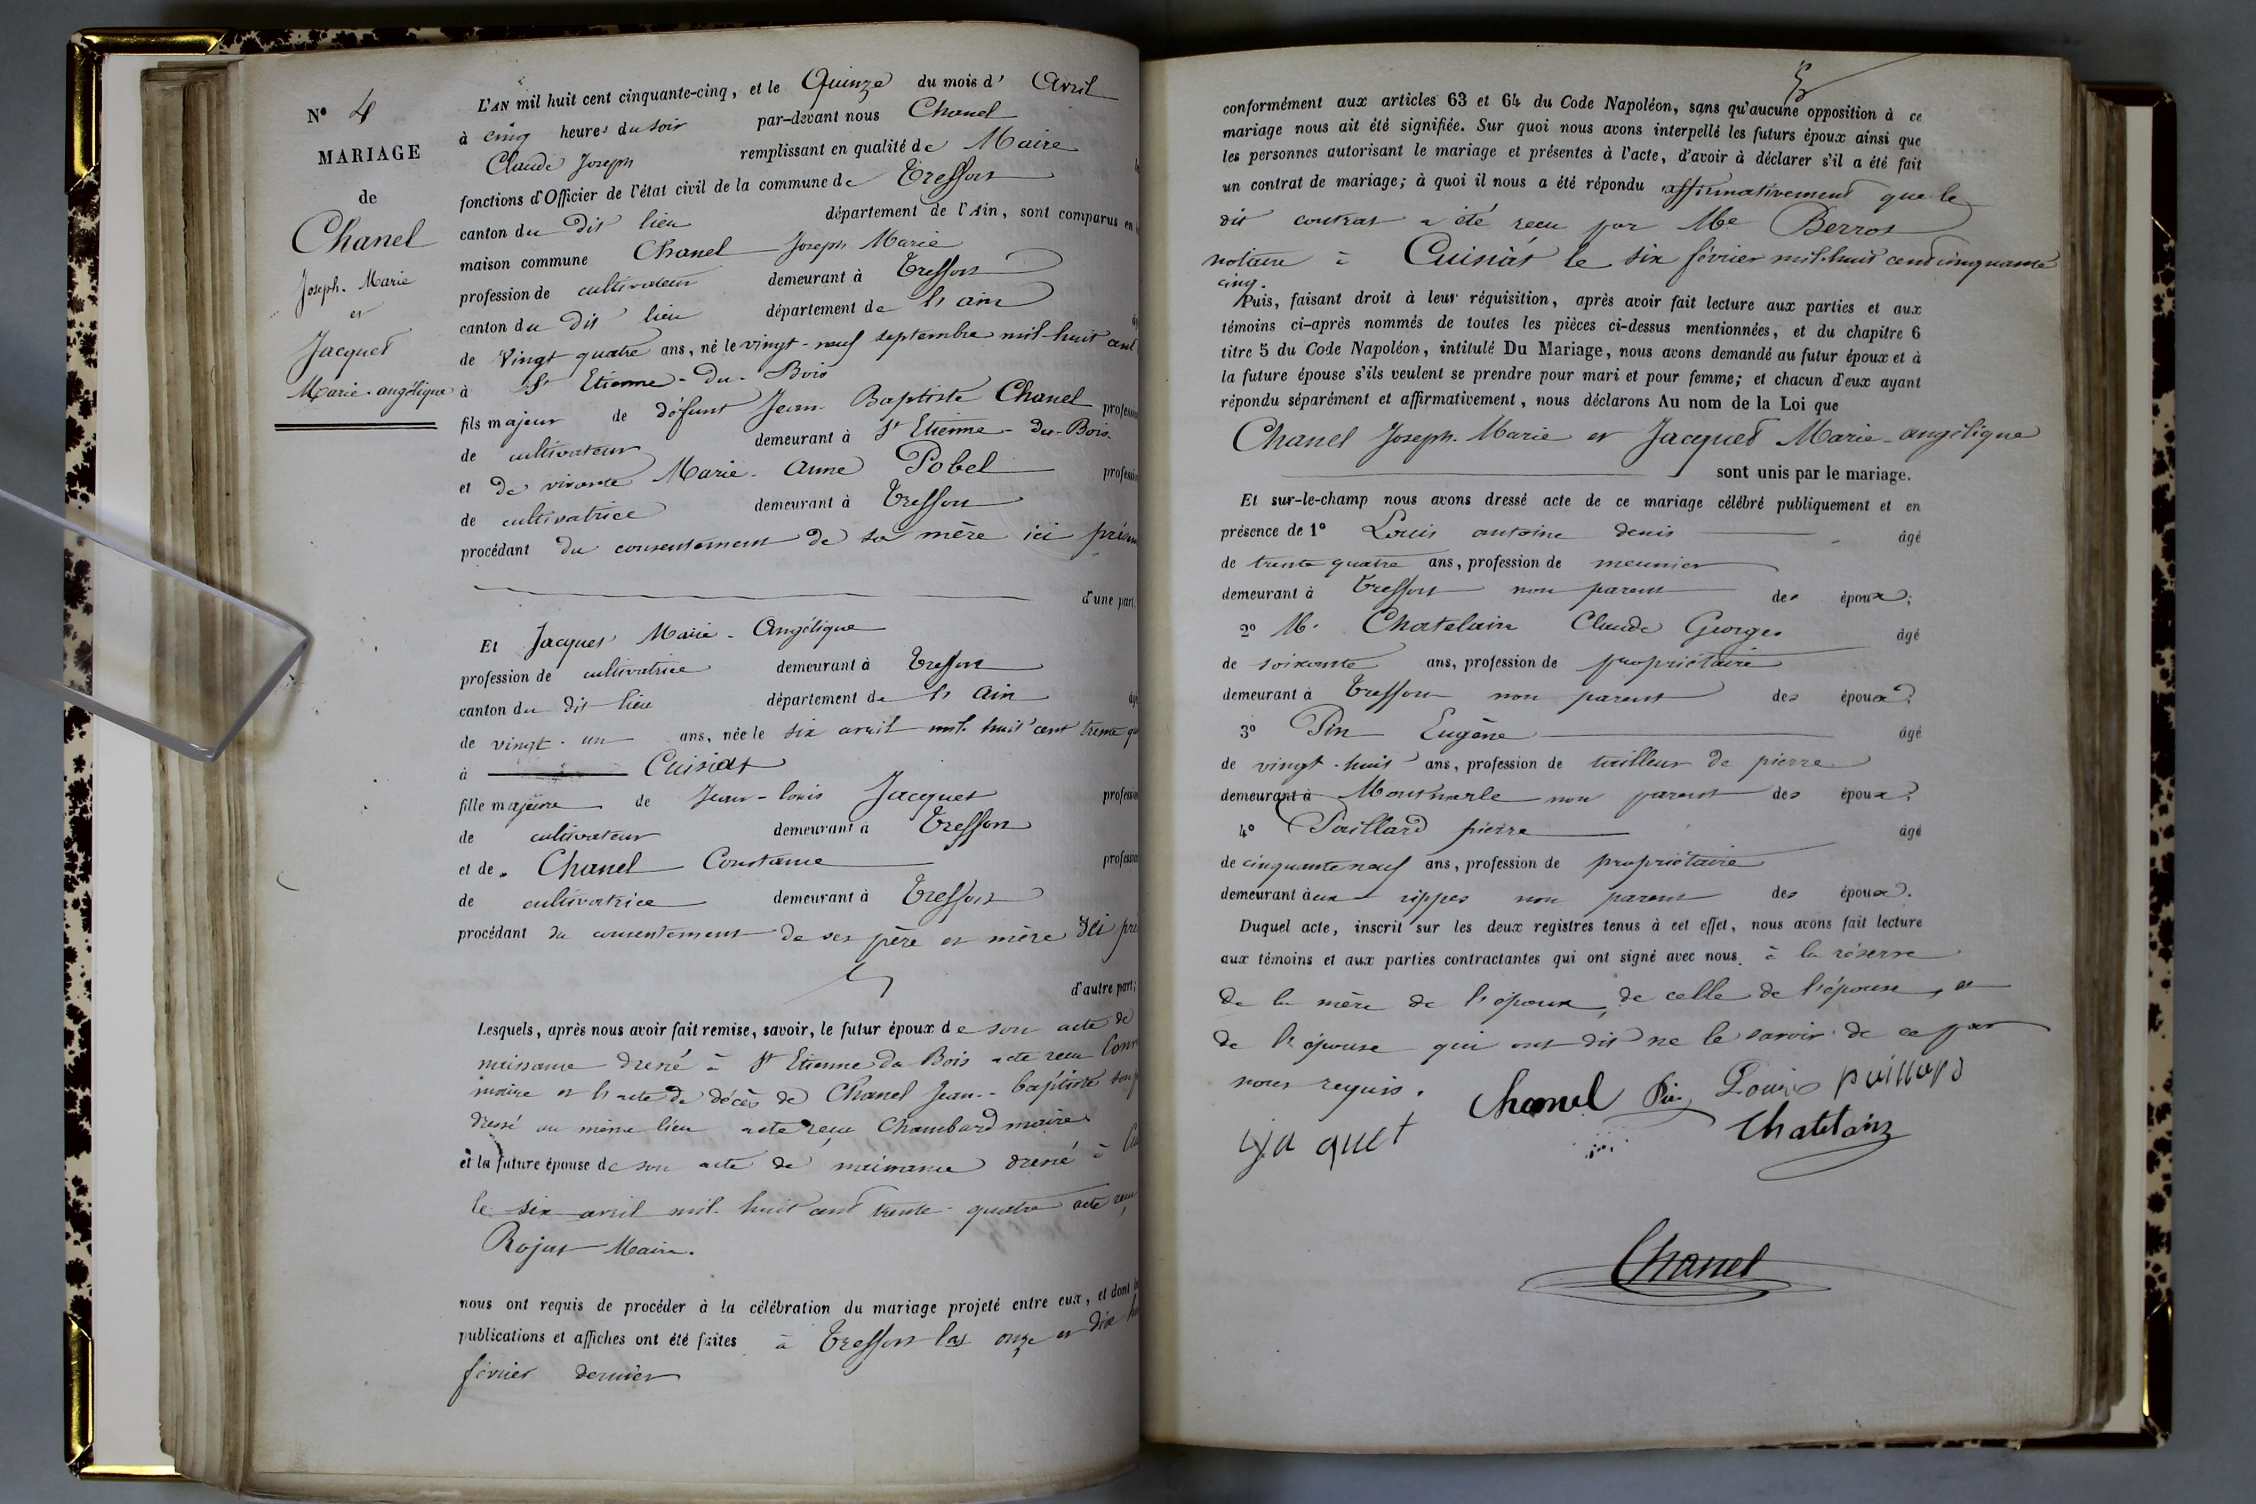 N° 4
MARIAGE
de
Chanel
Joseph-Marie
et
Jacquet
Marie-angélique
L'AN mil huit cent cinquante-cinq, et le Quinze du mois d' Avril
à cinq heures du soir par-devant nous Chanel
Claude Joseph remplissant en qualité de Maire
fonctions d'Officier de l'état civil de la commune de Treffort
canton du dit lieu département de l'Ain, sont comparus en
maison commune Chanel Joseph Marie
profession de cultivateur demeurant à Treffort
canton du dit lieu département de l'ain
de vingt quatre ans, né le vingt-neuf septembre mil-huit cent
à St Etienne-du-Bois
fils majeur de défunt Jean-Baptiste Chanel profession
de cultivateur demeurant à St Etienne-du-Bois
et de vivante Marie-Anne Pobel profession
de cultivatrice demeurant à Treffort
procédant du consentement de sa mère ici
d'une part,
Et Jacquet Marie-Angélique
profession de cultivatrice demeurant à Treffort
canton du dit lieu département de l'Ain
de vingt-un ans, née le six avril mil huit cent trente
à Cuisiat
fille majeure de Jean-louis Jacquet profession
de cultivateur demeurant à Treffort
et de Chanel Constance profession
de cultivatrice demeurant à Treffort
procédant du consentement de ses père et mère ici
d'autre part;
Lesquels, après nous avoir fait remise, savoir, le futur époux de son acte de
naissance dressé à St Etienne du Bois acte reçu
maire et l'acte de décès de Chanel Jean-baptiste son
dressé au même lieu acte reçu Chambard maire
et la future épouse de son acte de naissance dressé à
le six avril mil-huit cent trente-quatre acte reçu
Rojat Maire.
nous ont requis de procéder à la célébration du mariage projeté entre eux, et dont
publications et affiches ont été faites à Treffort les onze et dix
février dernier
conformément aux articles 63 et 64 du Code Napoléon, sans qu'aucune opposition à ce
mariage nous ait été signifiée. Sur quoi nous avons interpellé les futurs époux ainsi que
les personnes autorisant le mariage et présentes à l'acte, d'avoir à déclarer s'il a été fait
un contrat de mariage; à quoi il nous a été répondu affirmativement que le
dit contrat a été reçu par Me Berrot
notaire à Cuisiat le six février mil-huit cent cinquante
cinq.
Puis, faisant droit à leur réquisition, après avoir fait lecture aux parties et aux
témoins ci-après nommés de toutes les pièces ci-dessus mentionnées, et du chapitre 6
titre 5 du Code Napoléon, intitulé Du Mariage, nous avons demandé au futur époux et à
la future épouse s'ils veulent se prendre pour mari et pour femme; et chacun d'eux ayant
répondu séparément et affirmativement, nous déclarons Au nom de la Loi que
Chanel Joseph-Marie et Jacquet Marie-angélique
sont unis par le mariage.
Et sur-le-champ nous avons dressé acte de ce mariage célébré publiquement et en
présence de 1° Louis antoine denis âgé
de trente quatre ans, profession de meunier
demeurant à Treffort non parent des époux;
2° M. Chatelain Claude Georges âgé
de soixante ans, profession de propriétaire
demeurant à Treffort non parent des époux;
3° Pin Eugène âgé
de vingt-huit ans, profession de tailleur de pierre
demeurant à Montmerle non parent des époux;
4° Paillard pierre âgé
de cinquante neuf ans, profession de propriétaire
demeurant aux rippes non parent des époux.
Duquel acte, inscrit sur les deux registres tenus à cet effet, nous avons fait lecture
aux témoins et aux parties contractantes qui ont signé avec nous à la réserve
de la mère de l'époux, de celle de l'épouse, et
de l'épouse qui ont dit ne le savoir de ce par
nous requis.
Chanel Pin Louis paillard
jaquet Chatelain
Chanel